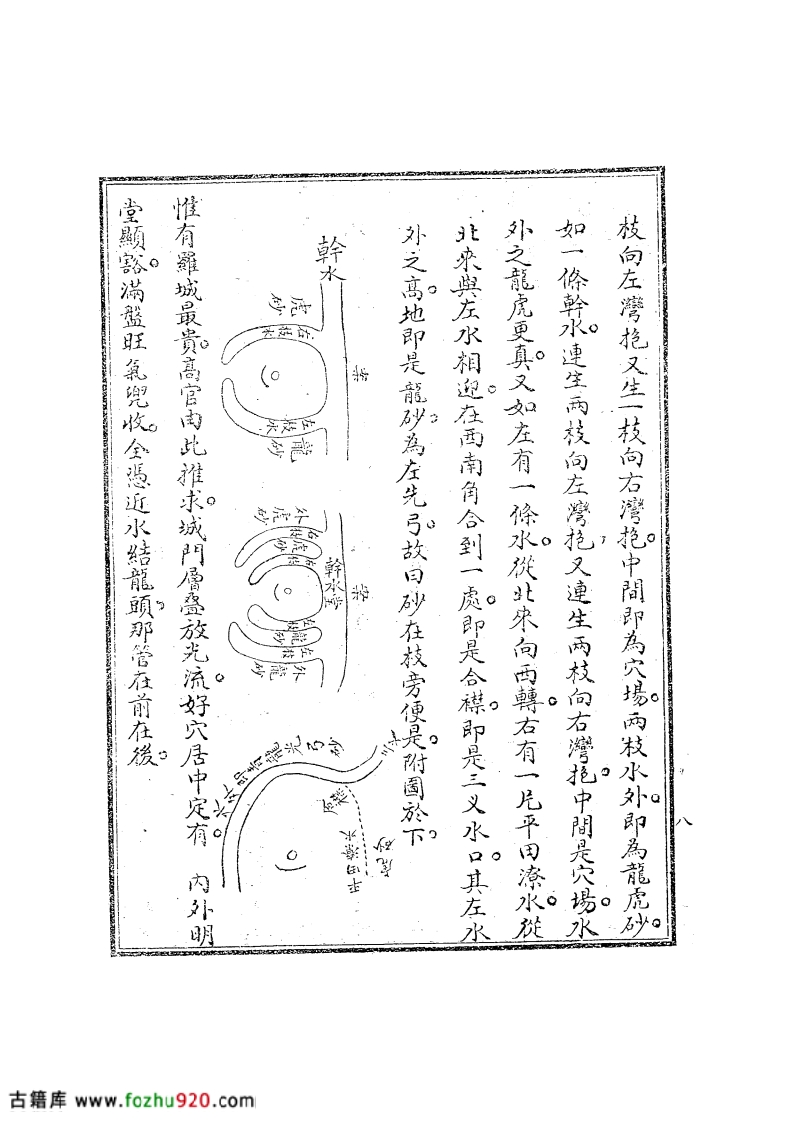 枝向左灣抱又生一枝向右灣抱。中間即為穴場。兩枝水外。即為龍虎砂。
如一條幹水。連生兩枝向左灣抱，又連生兩枝向右灣抱。中間是穴場。水
外之龍虎更真。又如左有一條水。從北來向西轉。右有一片平田潦水。從
北來與左水相迎。在西南角合到一處。即是合襟。即是三义水口。其左水
外之高。地即是龍砂。為左先弓。故曰砂在枝旁便是。附圖於下。
幹水
虎砂
右枝水
左枝水
龍砂
幹水
堂
外虎砂
右枝
虎砂
左枝
龍砂
左枝
外龍砂
先弓砂
三义
合襟
平田潦水
虎砂
惟有羅城最貴。高官由此推求。城門層叠放光流。好穴居中定有。 內外明
堂顯豁。滿盤旺氣兜收。全憑近水結龍頭。那管在前在後。
八
古籍库 www.fozhu920.com